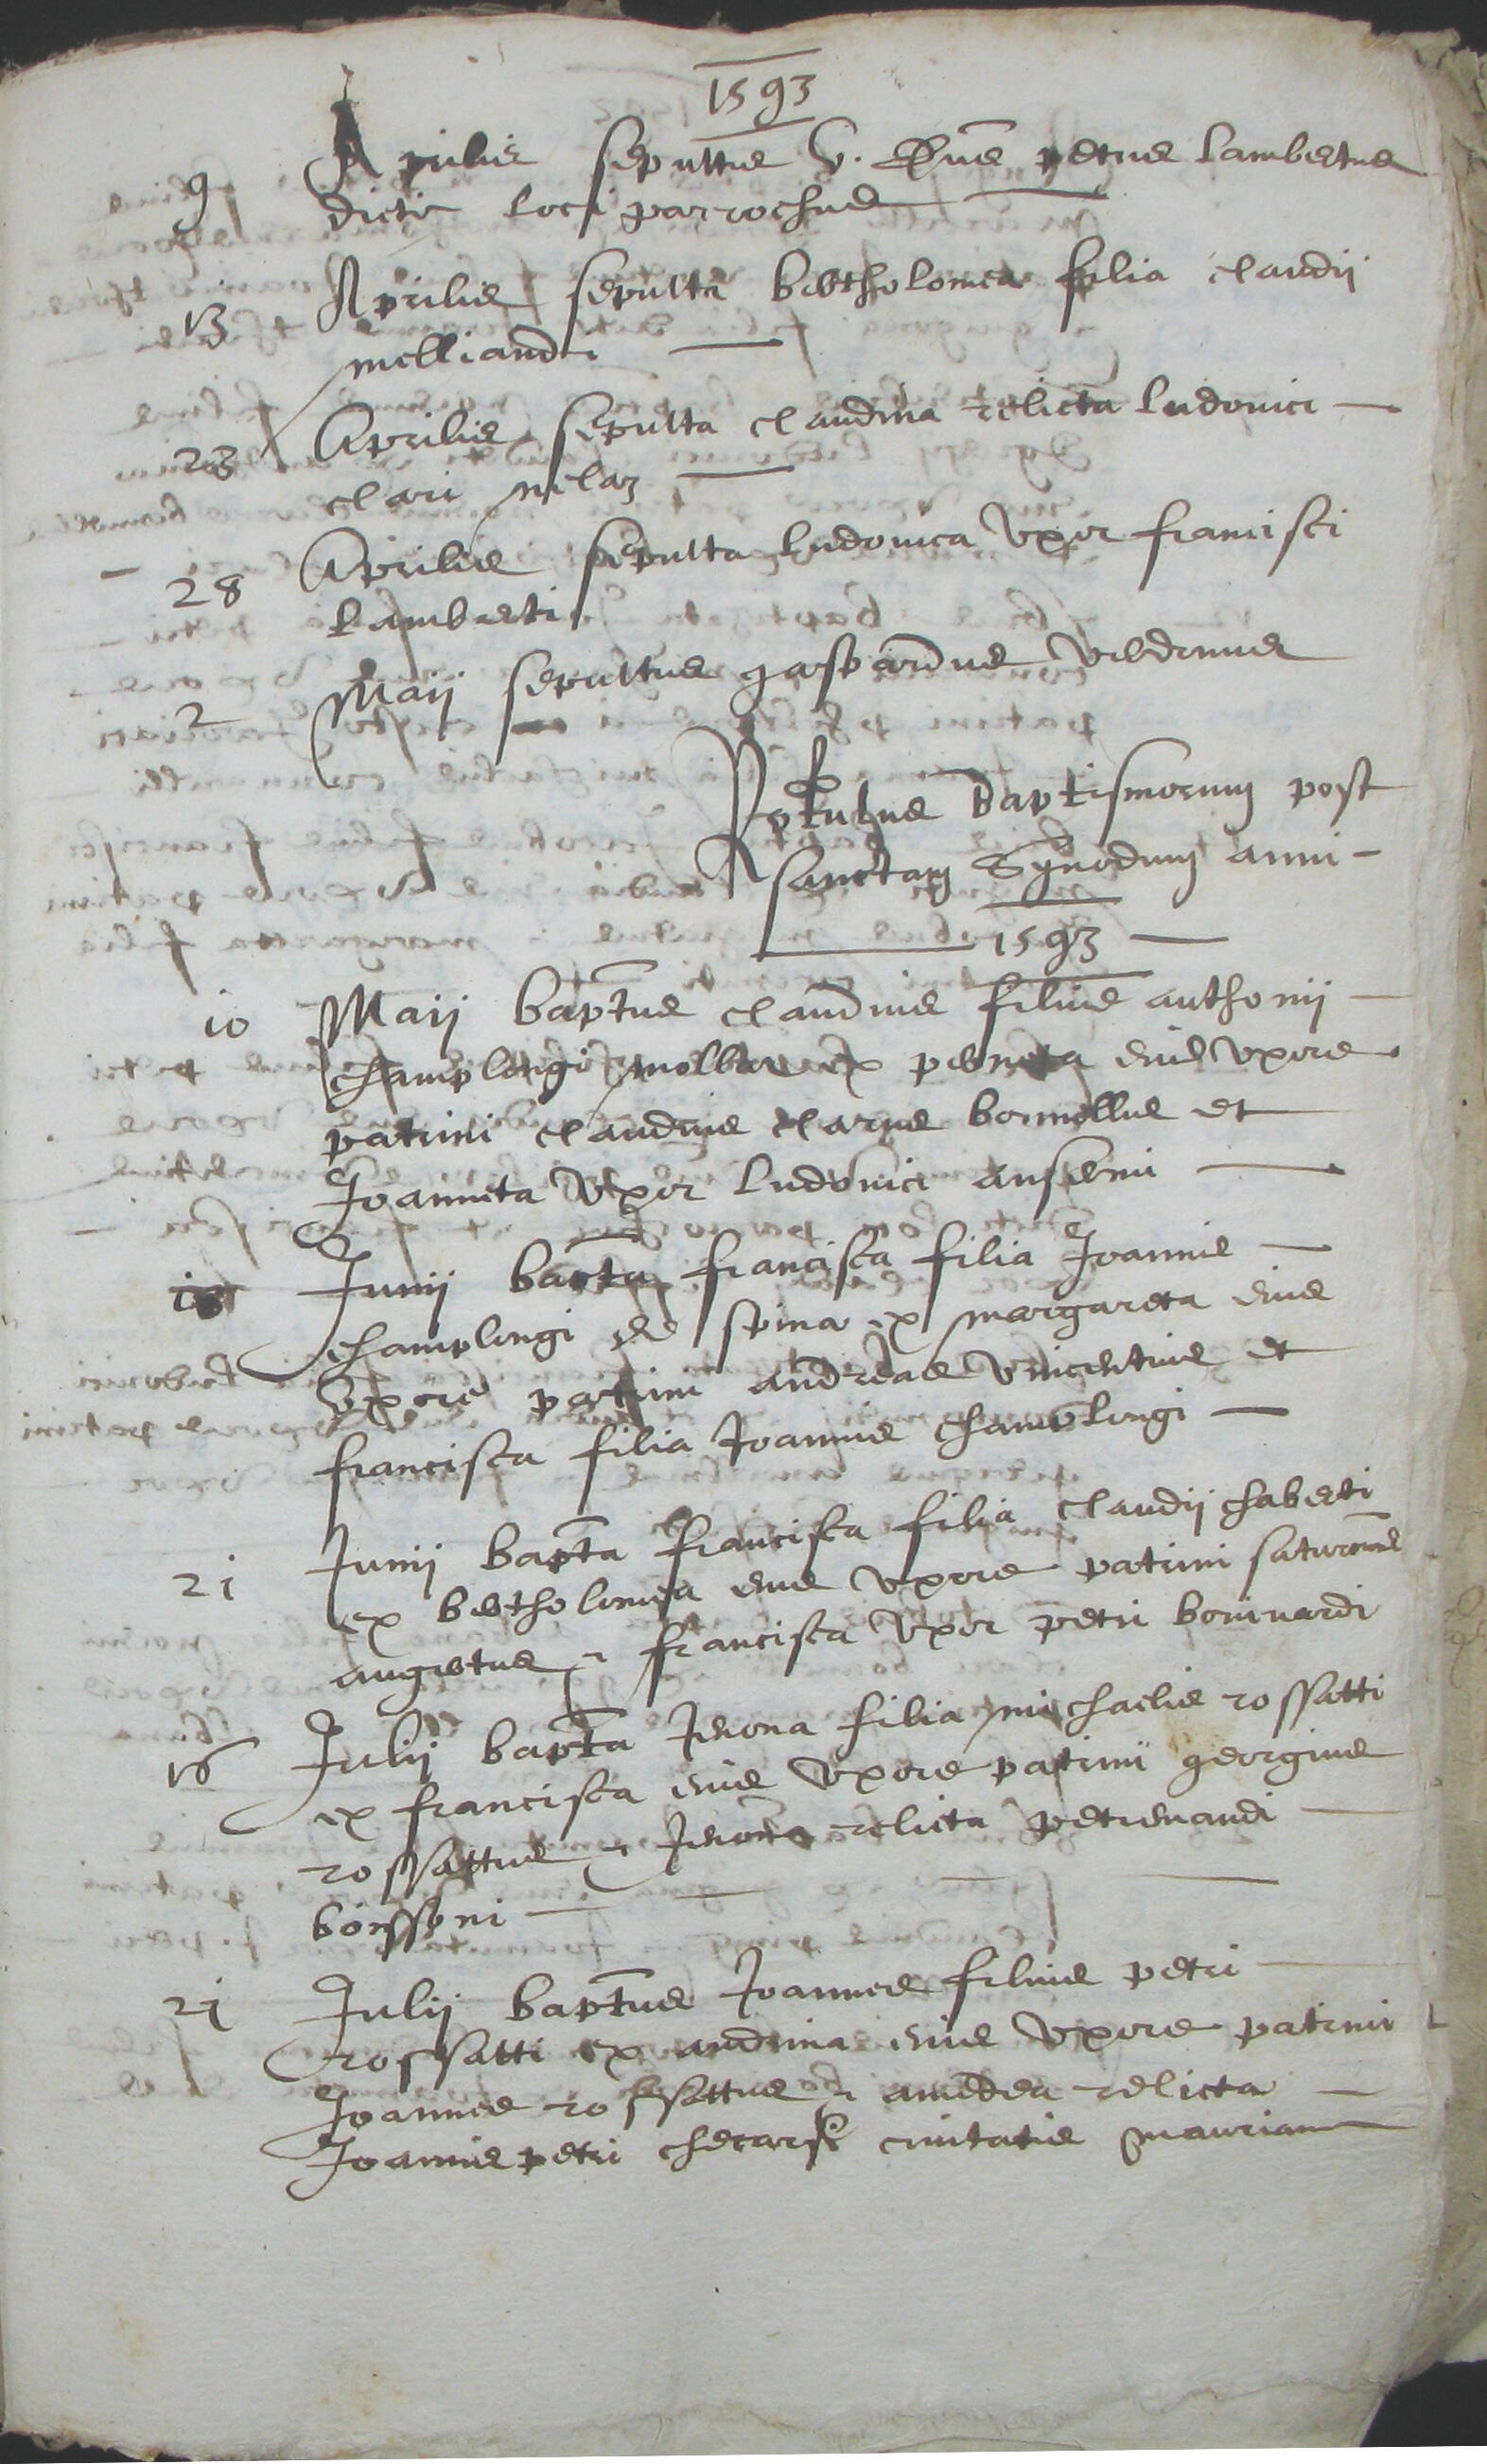 1593
9 Aprilis sepultus v. Dns petrus lambertus
dicti loci parrochus
13 Aprilis sepulta bertholomea filia claudii
melliandi
23 Aprilis sepulta claudina relicta ludovici
clari
28 Aprilis sepulta ludovica vxor francisci
lamberti
2 Maij sepultus gaspardus
baptismorum post
sanctam Synodum anni
1593
10 Maij baptus claudius filius anthonii
champlongi ex perneta eius vxore
patrini claudius clarus bormellus et
Joanneta vxor ludovici anselmi
Junij bapta francisca filia Joannis
champlongi de spina ex margareta eius
vxore patrini andreas vincentius et
francisca filia Joannis champlongi
21 Junij bapta francisca filia claudij chaberti
ex bertholomea eius vxore patrini
augertus et francisca vxor petri bonivardi
16 Julij bapta filia michaelis rossatti
ex francisca eius vxore patrini georgius
rossattus et relicta petremandi
boissoni
21 Julij baptus Joannes filius petri
rossatti ex andrina eius vxore patrini
Joannes rossattus et amedea relicta
Joannis petri civitatis maurianne